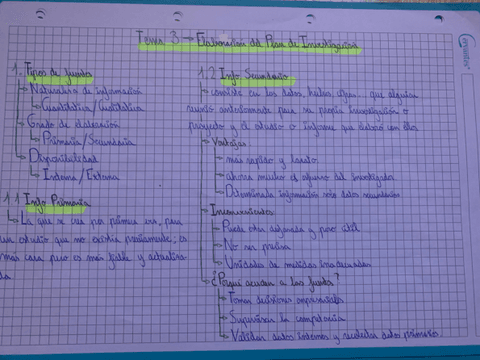 Tema 3 → Elaboración del Plan de Investigación
1. Tipos de fuente
Naturaleza de información
Cuantitativa/Cualitativa
Grado de elaboración
Primaria/Secundaria
Disponibilidad
Interna/Externa
1.1 Info Primaria
La que se crea por primera vez, para
un estudio que no existía previamente, es
mas cara pero es más fiable y actualiza
da
1.2 Info Secundaria
consiste en los datos, hechos, cifras que alguien
reunió anteriormente para su propia investigación o
proyecto y el estudio o informe que elaboró con ellos
Ventajas
mas rapido y barato
ahorra mucho el esfuerzo del investigador
Determinada información solo datos secundarios
Inconvenientes
Puede estar desfasada y poco útil
No ser precisa
Unidades de medidas inadecuadas
¿Porqué acuden a las fuentes?
Tomar decisiones empresariales
Supervisar la competencia
Validar datos internos y recolectar datos primarios.